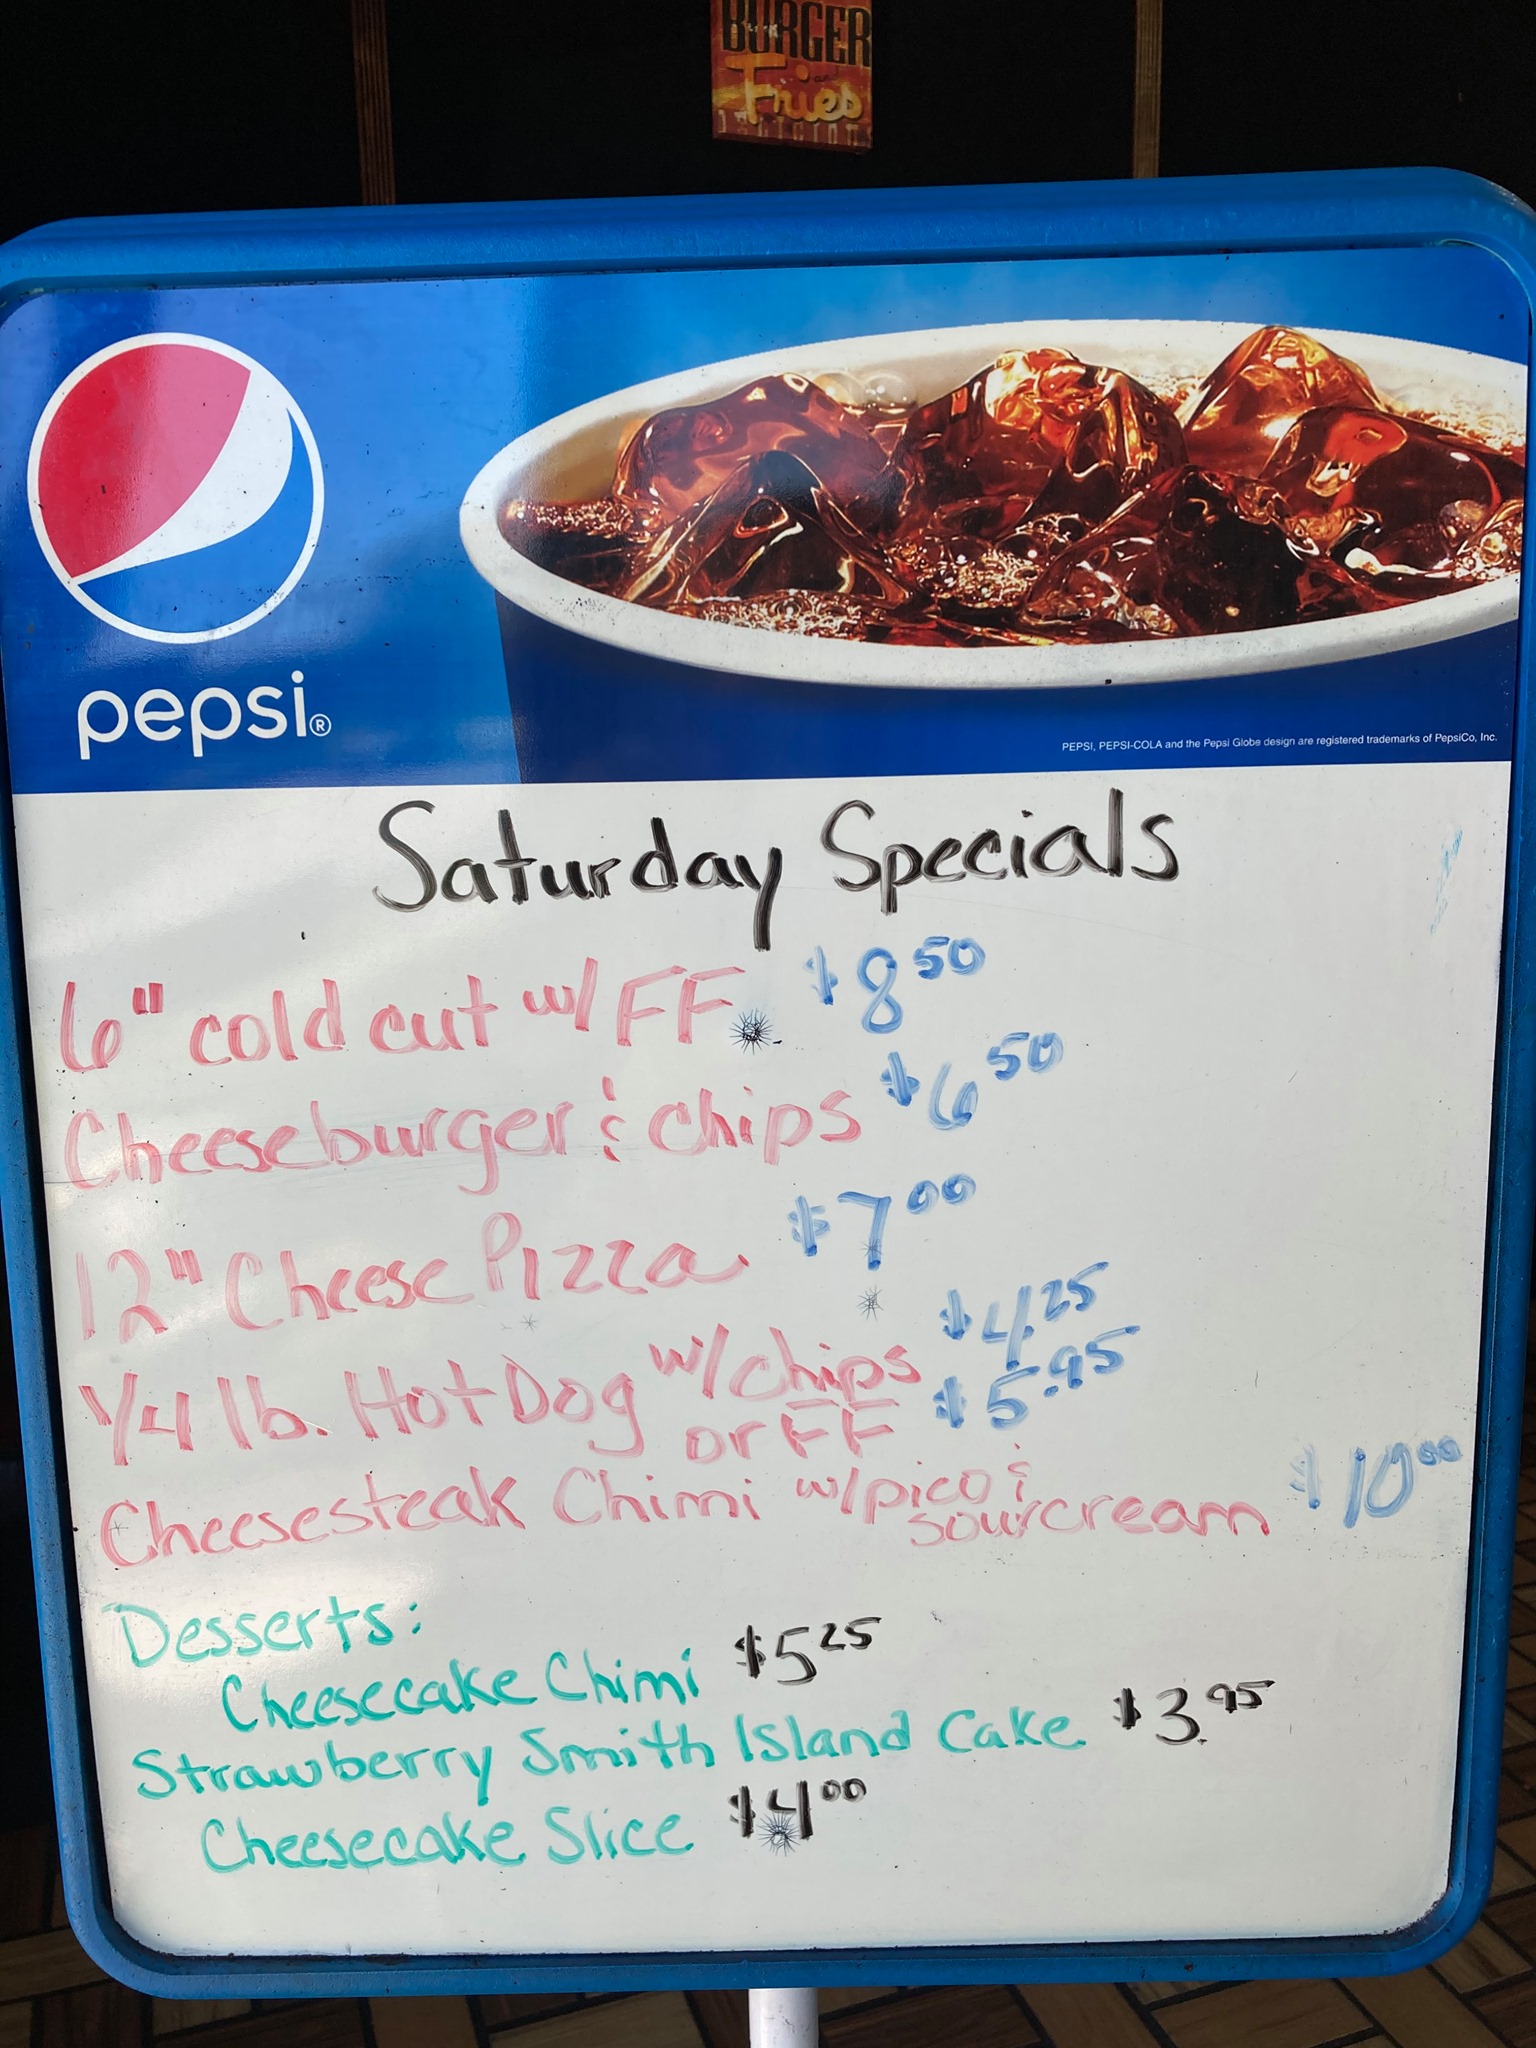 BURGER
and
Fries
pepsi®
PEPSI, PEPSI-COLA and the Pepsi Globe design are registered trademarks of PepsiCo, Inc.
Saturday Specials
6" cold cut w/ FF $8 50
Cheeseburger & chips $6 50
12" Cheese Pizza $7 00
1/4 lb. Hot Dog w/chips $4 25
or FF $5.95
Cheesesteak Chimi w/pico &
sourcream $10 00
Desserts:
Cheesecake Chimi $5 25
Strawberry Smith Island Cake $3.95
Cheesecake Slice $4 00